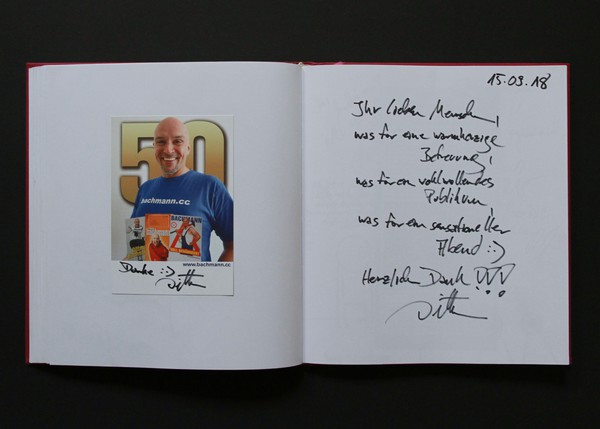 50
bachmann.cc
BACHMANN
www.bachmann.cc
Danke :-)
15.03.18
Ihr lieben Menschen,
was für eine warmherzige
Betreuung!
was für ein wohlwollendes
Publikum,
was für ein sensationeller
Abend :-)
Herzlichen Dank !!!